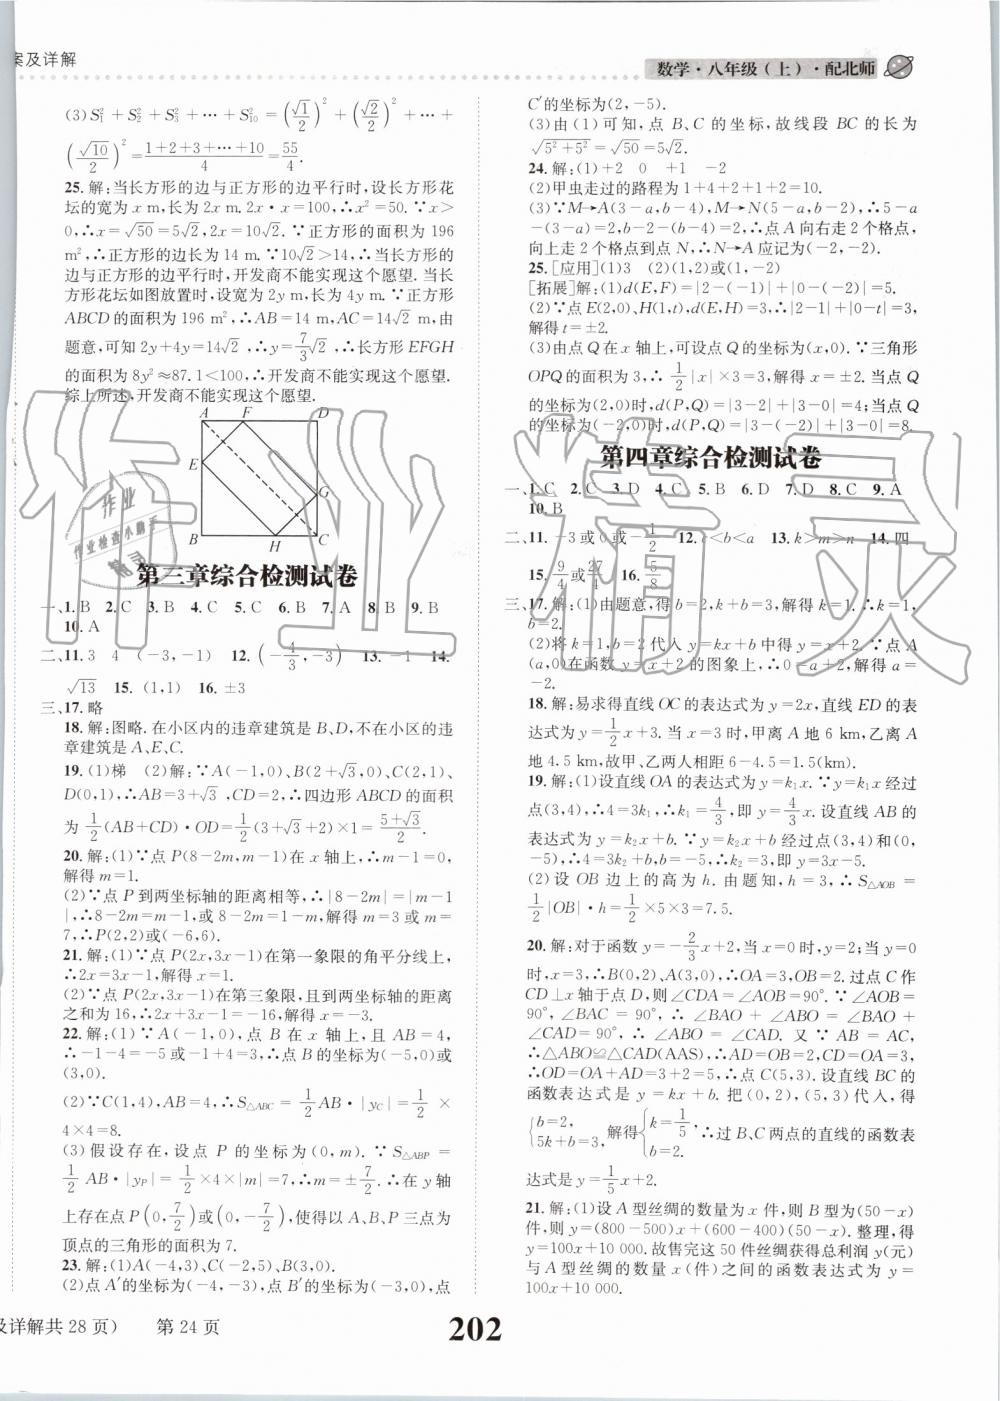 案及详解
数学·八年级（上）·配北师
(3)S₁²+S₂²+S₃²+…+S₁₀²=(√1/2)²+(√2/2)²+…+
(√10/2)²=(1+2+3+…+10)/4=55/4.
25.解:当长方形的边与正方形的边平行时,设长方形花
坛的宽为 x m,长为 2x m. 2x·x=100,∴x²=50.∵x>
0,∴x=√50=5√2,2x=10√2.∵正方形的面积为 196
m²,∴正方形的边长为 14 m.∵10√2>14,∴当长方形的
边与正方形的边平行时,开发商不能实现这个愿望.当长
方形花坛如图放置时,设宽为 2y m,长为 4y m.∵正方形
ABCD 的面积为 196 m²,∴AB=14 m,AC=14√2 m.由
题意,可知 2y+4y=14√2,∴y=7/3√2,∴长方形 EFGH
的面积为 8y²≈87.1<100,∴开发商不能实现这个愿望.
综上所述,开发商不能实现这个愿望.
A F D
E
G
B H C
第三章综合检测试卷
一、1.B 2.C 3.B 4.C 5.C 6.B 7.A 8.B 9.B
10.A
二、11.3 4 (-3,-1) 12.(-4/3,-3) 13.-1 14.
√13 15.(1,1) 16.±3
三、17.略
18.解:图略.在小区内的违章建筑是 B、D,不在小区的违
章建筑是 A、E、C.
19.(1)梯 (2)解:∵A(-1,0),B(2+√3,0),C(2,1),
D(0,1),∴AB=3+√3,CD=2,∴四边形 ABCD 的面积
为 1/2(AB+CD)·OD=1/2(3+√3+2)×1=(5+√3)/2.
20.解:(1)∵点 P(8-2m,m-1)在 x 轴上,∴m-1=0,
解得 m=1.
(2)∵点 P 到两坐标轴的距离相等,∴|8-2m|=|m-1
|,∴8-2m=m-1,或 8-2m=1-m,解得 m=3 或 m=
7,∴P(2,2)或(-6,6).
21.解:(1)∵点 P(2x,3x-1)在第一象限的角平分线上,
∴2x=3x-1,解得 x=1.
(2)∵点 P(2x,3x-1)在第三象限,且到两坐标轴的距离
之和为 16,∴2x+3x-1=-16,解得 x=-3.
22.解:(1)∵A(-1,0),点 B 在 x 轴上,且 AB=4,
∴-1-4=-5 或 -1+4=3,∴点 B 的坐标为(-5,0)或
(3,0).
(2)∵C(1,4),AB=4,∴S△ABC=1/2AB·|yC|=1/2×
4×4=8.
(3)假设存在,设点 P 的坐标为(0,m).∵S△ABP=
1/2 AB·|yP|=1/2×4×|m|=7,∴m=±7/2.∴在 y 轴
上存在点 P(0,7/2)或(0,-7/2),使得以 A、B、P 三点为
顶点的三角形的面积为 7.
23.解:(1)A(-4,3)、C(-2,5)、B(3,0).
(2)点 A′的坐标为(-4,-3),点 B′的坐标为(-3,0),点
C′的坐标为(2,-5).
(3)由(1)可知,点 B、C 的坐标,故线段 BC 的长为
√(5²+5²)=√50=5√2.
24.解:(1)+2 0 +1 -2
(2)甲虫走过的路程为 1+4+2+1+2=10.
(3)∵M→A(3-a,b-4),M→N(5-a,b-2),∴5-a
-(3-a)=2,b-2-(b-4)=2,∴点 A 向右走 2 个格点,
向上走 2 个格点到点 N,∴N→A 应记为(-2,-2).
25.[应用](1)3 (2)(1,2)或(1,-2)
[拓展]解:(1)d(E,F)=|2-(-1)|+|0-(-2)|=5.
(2)∵点 E(2,0),H(1,t),d(E,H)=3,∴|2-1|+|0-t|=3,
解得 t=±2.
(3)由点 Q 在 x 轴上,可设点 Q 的坐标为(x,0).∵三角形
OPQ 的面积为 3,∴1/2|x|×3=3,解得 x=±2.当点 Q
的坐标为(2,0)时,d(P,Q)=|3-2|+|3-0|=4;当点 Q
的坐标为(-2,0)时,d(P,Q)=|3-(-2)|+|3-0|=8.
第四章综合检测试卷
一、1.C 2.C 3.D 4.C 5.B 6.D 7.D 8.C 9.A
10.B
二、11.-3 或 0 或 -1/2 12.c<b<a 13.k>m>n 14.四
15.9/4 或 27/4 16.5/8
三、17.解:(1)由题意,得 b=2,k+b=3,解得 k=1.∴k=1,
b=2.
(2)将 k=1,b=2 代入 y=kx+b 中得 y=x+2.∵点 A
(a,0)在函数 y=x+2 的图象上,∴0=a+2,解得 a=
-2.
18.解:易求得直线 OC 的表达式为 y=2x,直线 ED 的表
达式为 y=1/2x+3.当 x=3 时,甲离 A 地 6 km,乙离 A
地 4.5 km,故甲、乙两人相距 6-4.5=1.5(km).
19.解:(1)设直线 OA 的表达式为 y=k₁x.∵y=k₁x 经过
点(3,4),∴4=3k₁,∴k₁=4/3,即 y=4/3x.设直线 AB 的
表达式为 y=k₂x+b.∵y=k₂x+b 经过点(3,4)和(0,
-5),∴4=3k₂+b,b=-5,∴k₂=3,即 y=3x-5.
(2)设 OB 边上的高为 h.由题知,h=3,∴S△AOB=
1/2|OB|·h=1/2×5×3=7.5.
20.解:对于函数 y=-2/3x+2,当 x=0 时,y=2;当 y=0
时,x=3,∴B(0,2)、A(3,0),∴OA=3,OB=2.过点 C 作
CD⊥x 轴于点 D,则∠CDA=∠AOB=90°.∵∠AOB=
90°,∠BAC=90°,∴∠BAO+∠ABO=∠BAO+
∠CAD=90°,∴∠ABO=∠CAD.又∵AB=AC,
∴△ABO≌△CAD(AAS),∴AD=OB=2,CD=OA=3,
∴OD=OA+AD=3+2=5,∴点 C(5,3).设直线 BC 的
函数表达式是 y=kx+b.把(0,2),(5,3)代入,得
{b=2, 5k+b=3, 解得{k=1/5, b=2. ∴过 B、C 两点的直线的函数表
达式是 y=1/5x+2.
21.解:(1)设 A 型丝绸的数量为 x 件,则 B 型为(50-x)
件,则 y=(800-500)x+(600-400)(50-x).整理,得
y=100x+10 000.故售完这 50 件丝绸获得总利润 y(元)
与 A 型丝绸的数量 x(件)之间的函数表达式为 y=
100x+10 000.
及详解共 28 页） 第 24 页
202
作业精灵
作业
作业检查小助手
精灵